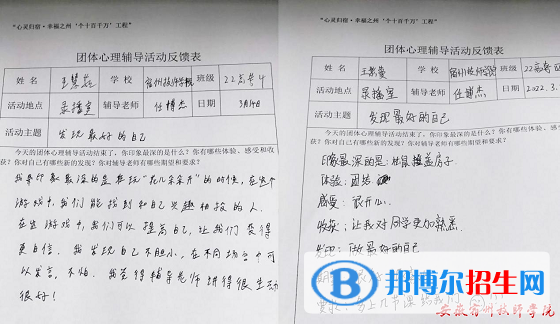 "心灵归宿·幸福之州'个十百千万'工程"
团体心理辅导活动反馈表
姓名 王慧 学校 宿州技师学院 班级 22高考4
活动地点 录播室 辅导老师 任博杰 日期 3月14日
活动主题 发现最好的自己
今天的团体心理辅导活动结束了，你印象最深的是什么？你有哪些体验、感受和收
获？你对自己有哪些新的发现？你对辅导老师有哪些期望和要求？
我印象最深的是在玩"花儿朵朵开"的时候，在这个
游戏中，我们能找到和自己兴趣相投的人。
在这游戏中，我们可以提高自己，让我们变得
更自信。我发现自己不胆小，在不同场合中可
以发言，不怕。我觉得辅导老师讲得很生动
很好！
"心灵归宿·幸福之州'个十百千万'工程"
团体心理辅导活动反馈表
姓名 王 学校 宿州技师学院 班级 22高考
活动地点 录播室 辅导老师 任博杰 日期 2022.3.
活动主题 发现最好的自己
今天的团体心理辅导活动结束了，你印象最深的是什么？你有哪些体验、感受和收
获？你对自己有哪些新的发现？你对辅导老师有哪些期望和要求？
印象最深的是：松鼠搬盖房子
体验：团结
感受：很开心
收获：让我对同学更加熟悉
发现：做最好的自己
邦博尔招生网
安徽宿州技师学院